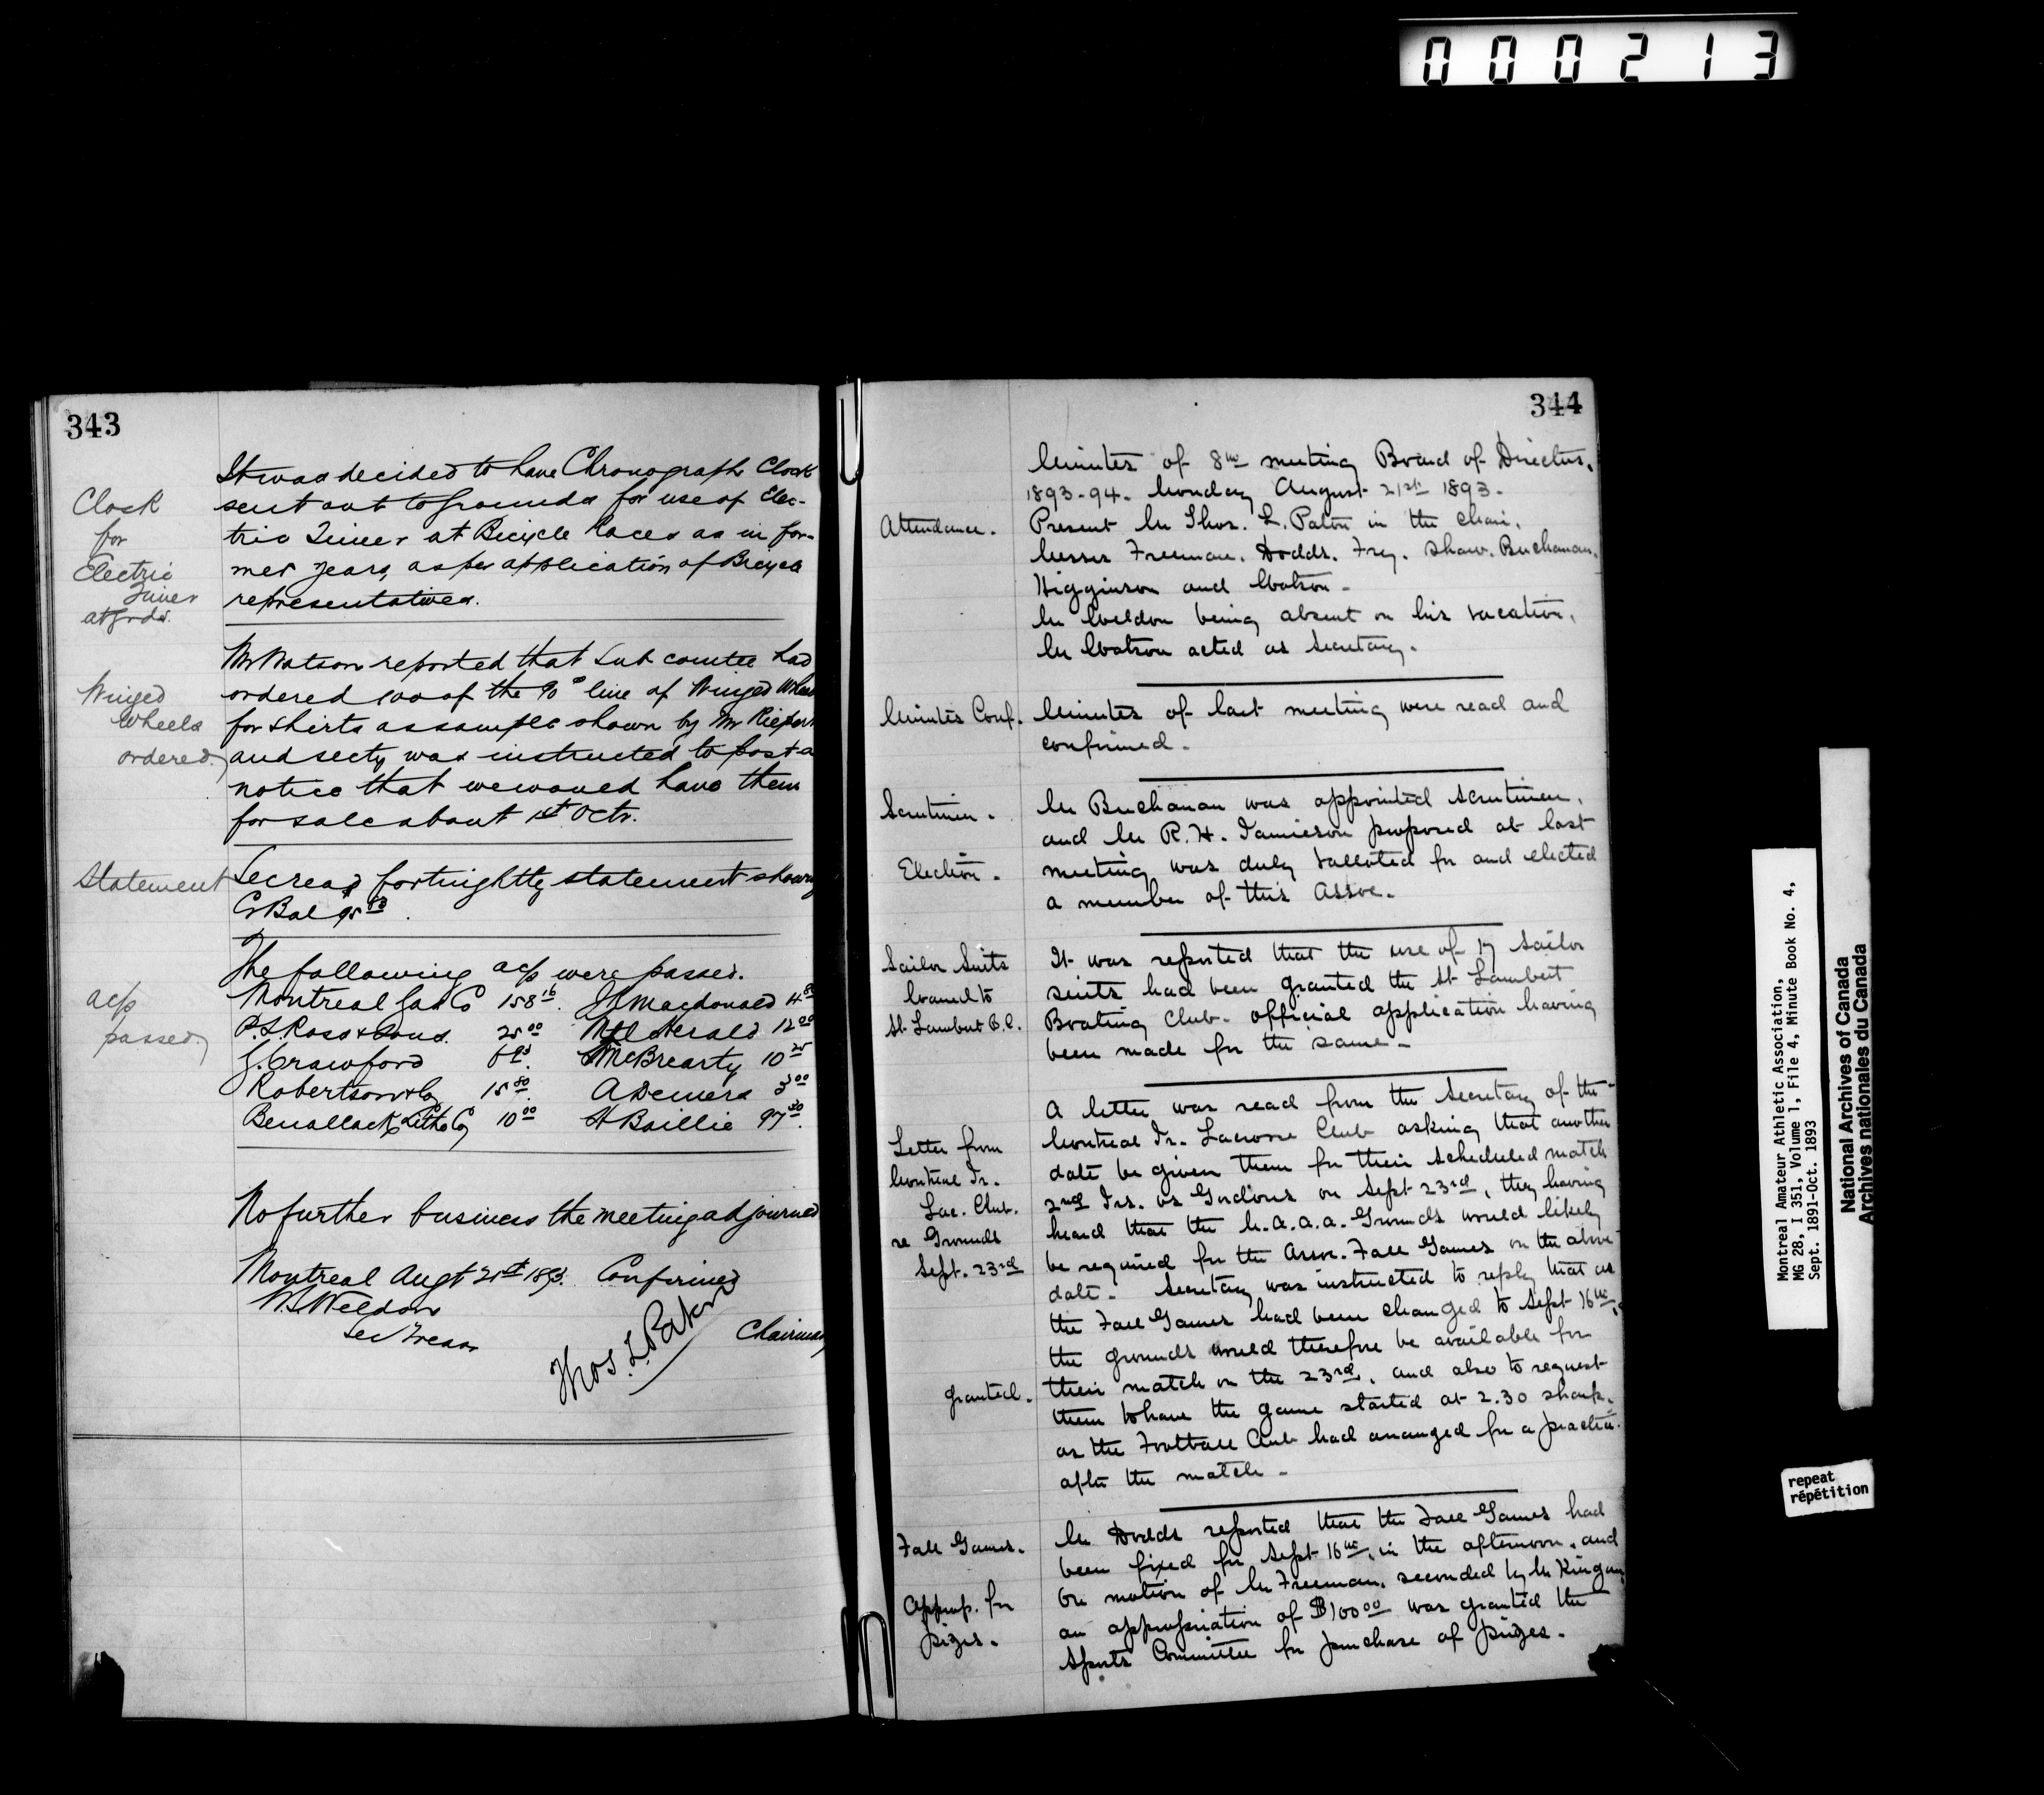 000213
343
Clock
for
Electric
Timer
at Grds.
It was decided to have Chronograph Clock
sent out to grounds for use of Elec-
tric Timer at Bicycle Races as in for-
mer years, as per application of Bicycle
representatives.
Winged
Wheels
ordered
Mr Watson reported that Sub comtee had
ordered 100 of the 90 line of Winged Wheel
for shirts as sample shown by Mr
and secty was instructed to post a
notice that we would have them
for sale about 1st Octr.
Statement
Sec read fortnightly statement showing
Cr Bal
a/cs
passed
The following a/cs were passed.
Montreal Gas Co 158 16 Macdonald
P.S. Ross & Sons. 25 00 Mtl Herald 12 00
J. Crawford McBrearty 10 25
Robertson & Co 15 80 A Demers 3 00
Benallack Litho Co 10 00 H Baillie 97
No further business the meeting adjourned
Montreal Augt 21st 1893. Confirmed
W. Weldon
Sec Treas
Thos. L. Paton
Chairman
344
Minutes of 8th meeting Board of Directors.
1893-94. Monday August 21st 1893.
Attendance.
Present Mr Thos. L. Paton in the chair.
Messrs Freeman. Dodds. Fry. Shaw. Buchanan.
Higginson and Watson -
Mr Weldon being absent on his vacation,
Mr Watson acted as Secretary.
Minutes Conf.
Minutes of last meeting were read and
confirmed -
Scrutineer.
Mr Buchanan was appointed scrutineer,
and Mr R. H. Jamieson proposed at last
Election.
meeting was duly balloted for and elected
a member of this Assoc.
Sailor Suits
loaned to
St. Lambert B.C.
It was reported that the use of 17 sailor
suits had been granted the St Lambert
Boating Club - official application having
been made for the same -
Letter from
Montreal Jr.
Lac. Club.
re Grounds
Sept. 23rd
A letter was read from the Secretary of the
Montreal Jr. Lacrosse Club asking that another
date be given them for their scheduled match
2nd Jrs. vs Gordons on Sept 23rd, they having
heard that the M.A.A.A. Grounds would likely
be required for the Assn. Fall Games on the above
date - Secretary was instructed to reply that as
the Fall Games had been changed to Sept 16th,
the grounds would therefore be available for
granted.
their match on the 23rd, and also to request
them to have the game started at 2.30 sharp,
as the Football Club had arranged for a practice
after the match -
Fall Games.
Mr Dodds reported that the Fall Games had
been fixed for Sept 16th, in the afternoon, and
Approp. for
prizes.
On motion of Mr Freeman, seconded by Mr Kingan,
an appropriation of $100 00 was granted the
Sports Committee for purchase of prizes.
Montreal Amateur Athletic Association,
MG 28, I 351, Volume 1, File 4, Minute Book No. 4,
Sept. 1891-Oct. 1893
National Archives of Canada
Archives nationales du Canada
repeat
répétition